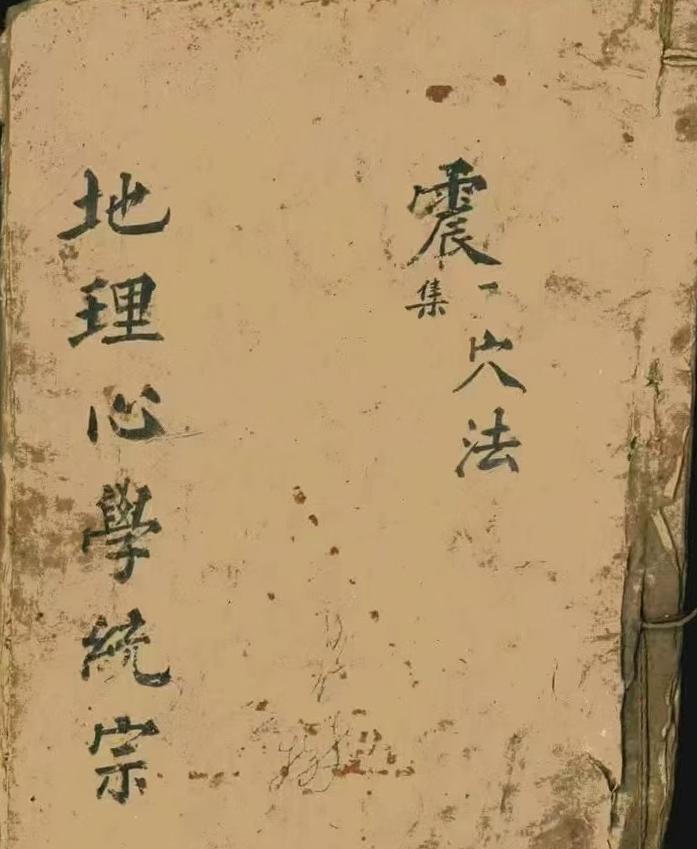 震
集
穴法
地理心學統宗